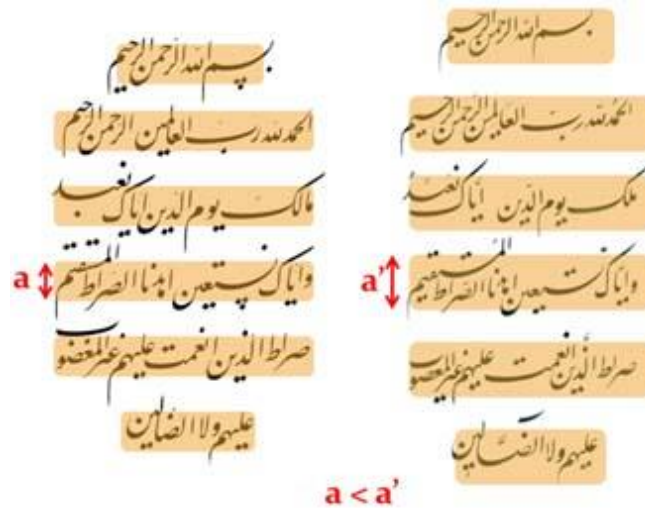 بسم الله الرحمن الرحیم
الحمد لله رب العالمین الرحمن الرحیم
مالک یوم الدین ایاک نعبد
وایاک نستعین اهدنا الصراط المستقیم
صراط الذین انعمت علیهم غیر المغضوب
علیهم ولا الضالین
a
بسم الله الرحمن الرحیم
الحمد لله رب العالمین الرحمن الرحیم
ملک یوم الدین ایّاک نعبدُ
وایّاک نستعین اهدنا الصراط المستقیم
صراط الَّذین انعمت علیهم غیر المغضوب
علیهم ولا الضَّآلین
a’
a < a’